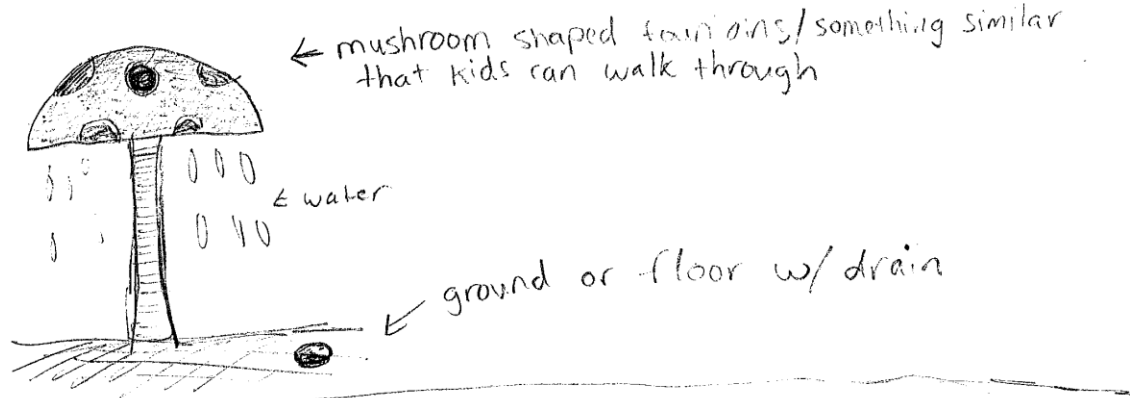 ← mushroom shaped /something similar
that kids can walk through
← water
ground or floor w/ drain